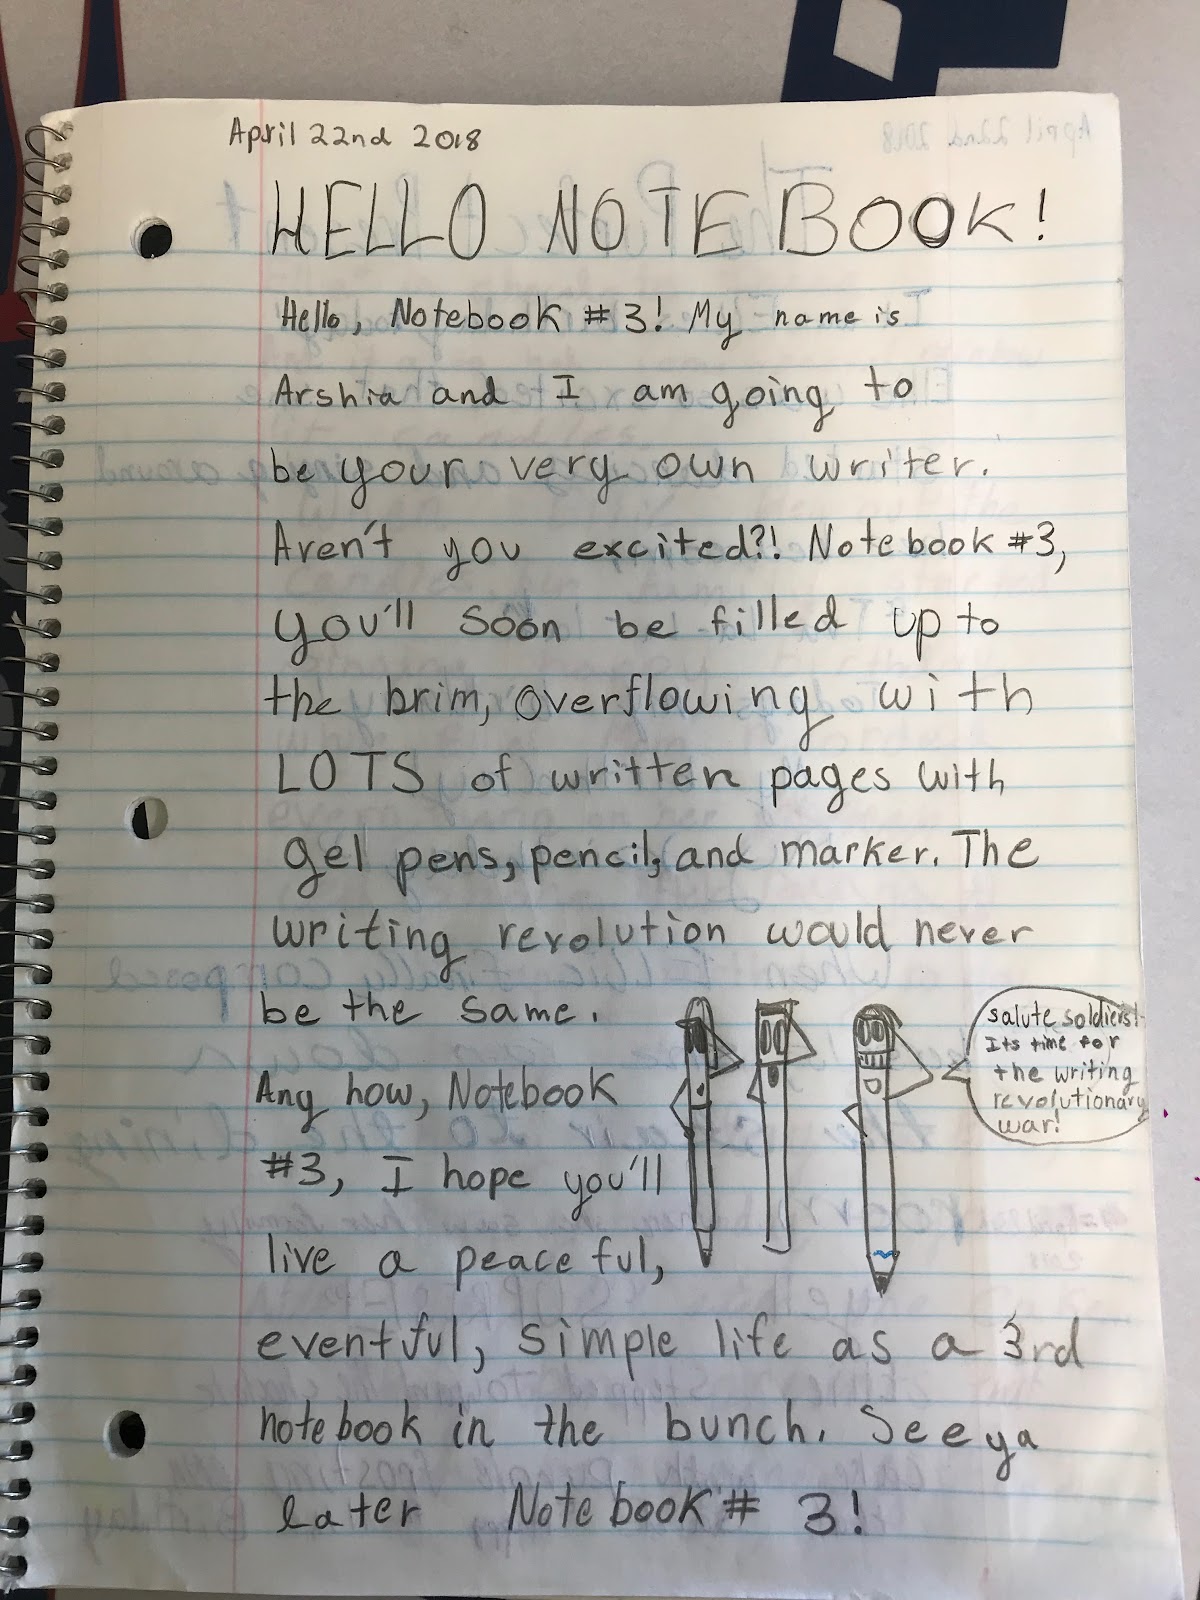 April 22nd 2018
HELLO NOTEBOOK!
Hello, Notebook #3! My name is
Arshia and I am going to
be your very own writer.
Aren't you excited?! Notebook #3,
you'll soon be filled up to
the brim, overflowing with
LOTS of written pages with
gel pens, pencil, and marker. The
writing revolution would never
be the same.
Any how, Notebook
#3, I hope you'll
live a peaceful,
eventful, simple life as a 3rd
notebook in the bunch. See ya
later Notebook # 3!
salute soldiers!
Its time for
the writing
revolutionary
war!